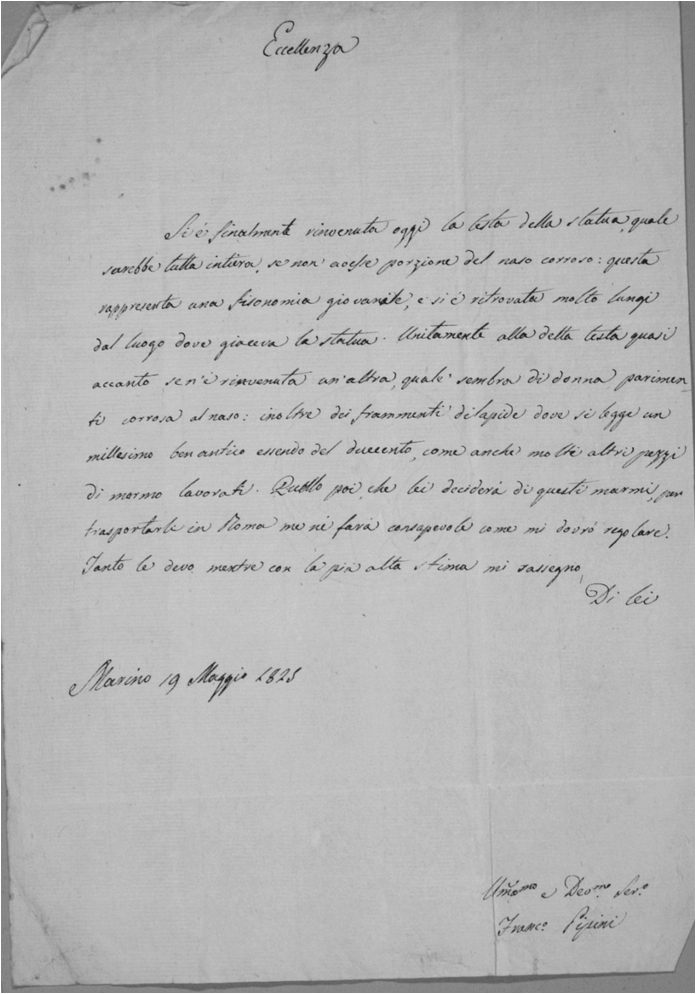 Eccellenza
Si é finalmente rinvenuta oggi la testa della statua, quale
sarebbe tutta intiera, se non' avesse porzione del naso corroso: questa
rappresenta una fisonomia giovanile, e si é ritrovata molto lungi
dal luogo dove giaceva la statua. Unitamente alla detta testa quasi
accanto se n'é rinvenuta un'altra, quale sembra di donna parimen
ti corrosa al naso: inoltre dei frammenti di lapide dove si legge un
millesimo ben antico essendo del duecento, come anche molti altri pezzi
di mormo lavorati. Quello poi, che lei deciderá di questi marmi, per
trasportarle in Roma me ne fará consapevole come mi dovró regolare.
Tanto le devo, mentre con la piu alta stima mi rassegno,
Di lei
Marino 19 Maggio 1825
Umõ e Devmo Servo
Franco